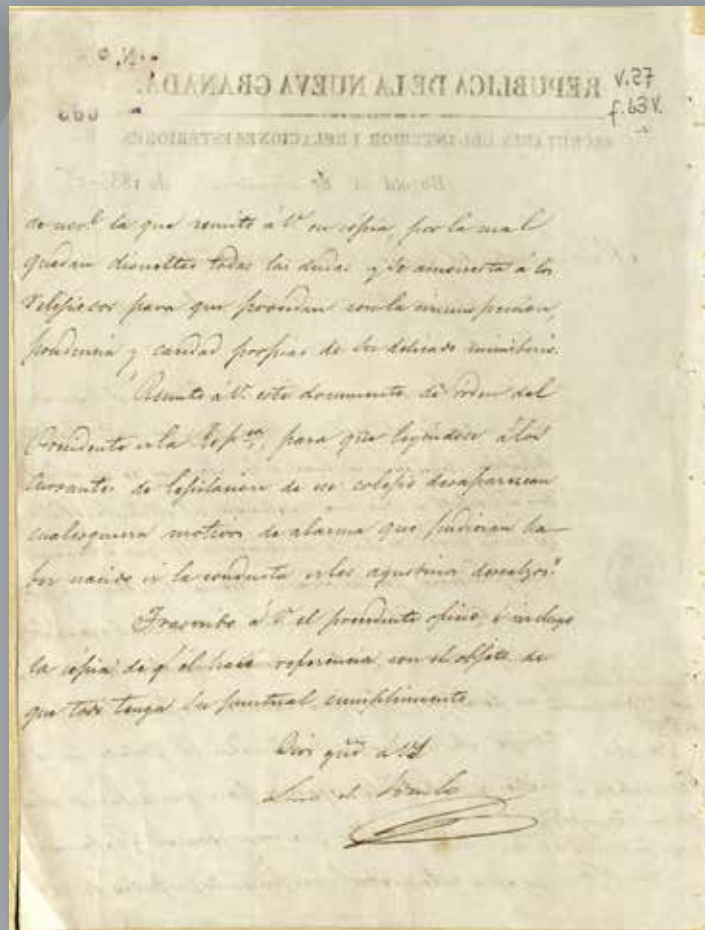 REPUBLICA DE LA NUEVA GRANADA.
V.27
f.63 V.
SECRETARIA DEL INTERIOR I RELACIONES ESTERIORES
Bogotá de de 183
de nov.e la que remito á V. en cópia, por la cual
quedan disueltas todas las dudas y se amonesta á los
relijiosos para que procedan con la circunspeccion,
prudencia y caridad propias de su delicado ministerio.
Remito á V. este documento de orden del
Presidente de la Rep.ca, para que leyendose á los
cursantes de lejislacion de ese colejio desaparescan
cualesquiera motivos de alarma que pudieran ha-
ber nacido de la conducta de los agustinos descalzos."
Trascribo á V. el precedente oficio, é incluyo
la cópia de q.e él hace referencia con el objeto de
que todo tenga su puntual cumplimiento.
Dios gue. á V.
Lino de Pombo